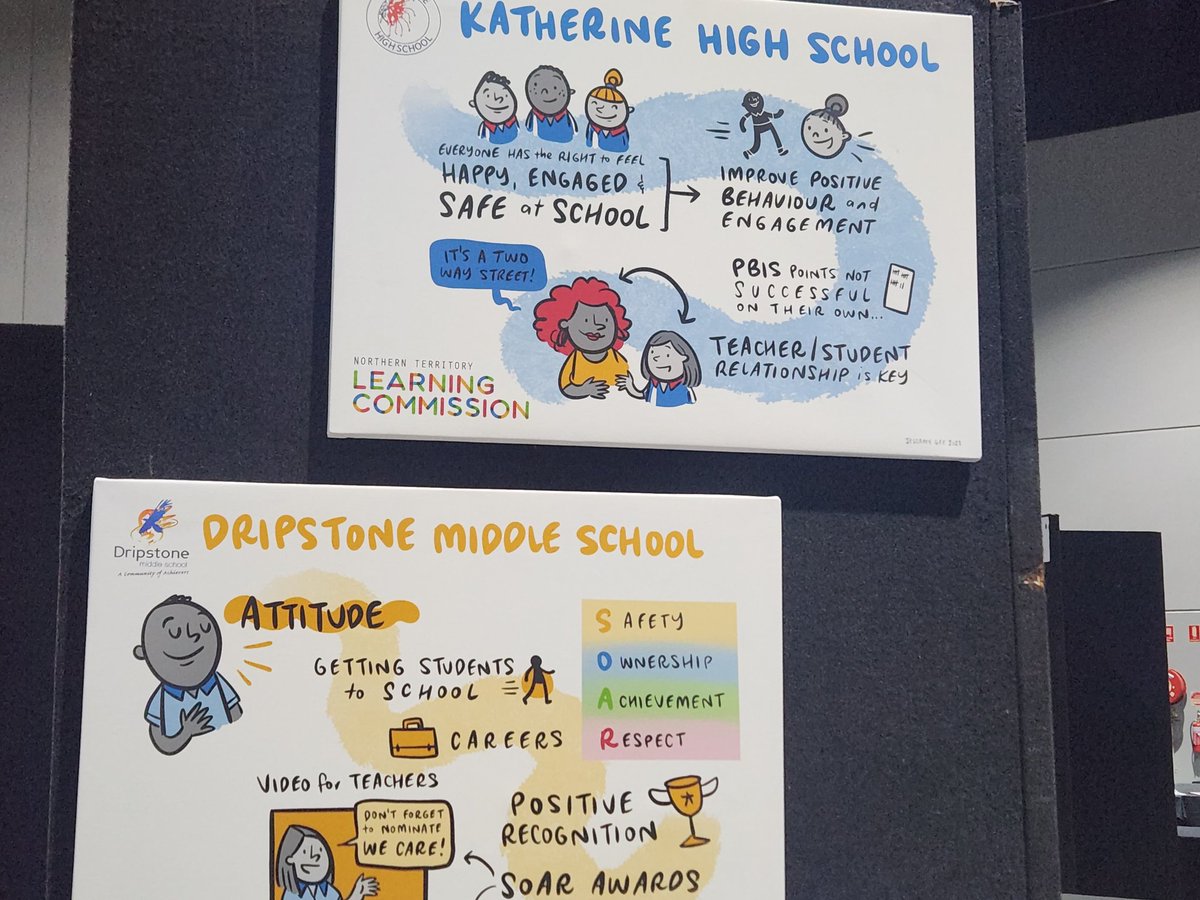 HIGH SCHOOL
KATHERINE HIGH SCHOOL
EVERYONE HAS the RIGHT to FEEL
HAPPY, ENGAGED &
SAFE at SCHOOL
IMPROVE POSITIVE
BEHAVIOUR and
ENGAGEMENT
IT'S A TWO
WAY STREET!
PBIS POINTS NOT
SUCCESSFUL
ON THEIR OWN...
TEACHER/STUDENT
RELATIONSHIP is KEY
NORTHERN TERRITORY
LEARNING
COMMISSION
Dripstone
middle school
A Community of Achievers
DRIPSTONE MIDDLE SCHOOL
ATTITUDE
GETTING STUDENTS
to SCHOOL
CAREERS
SAFETY
OWNERSHIP
ACHIEVEMENT
RESPECT
VIDEO for TEACHERS
DON'T FORGET
to NOMINATE
WE CARE!
POSITIVE
RECOGNITION
SOAR AWARDS